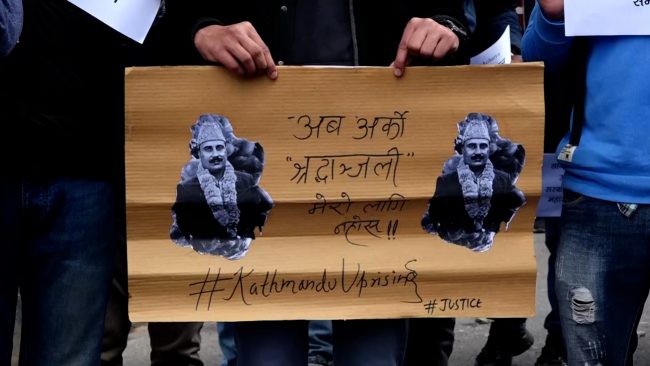 अब अर्को
"श्रद्धाञ्जली"
मेरो लागि
नहोस !!
#KathmanduUprising
#JUSTICE